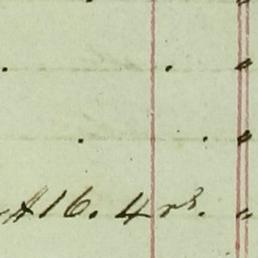 . "
. . "
A 16. 4 rs. "